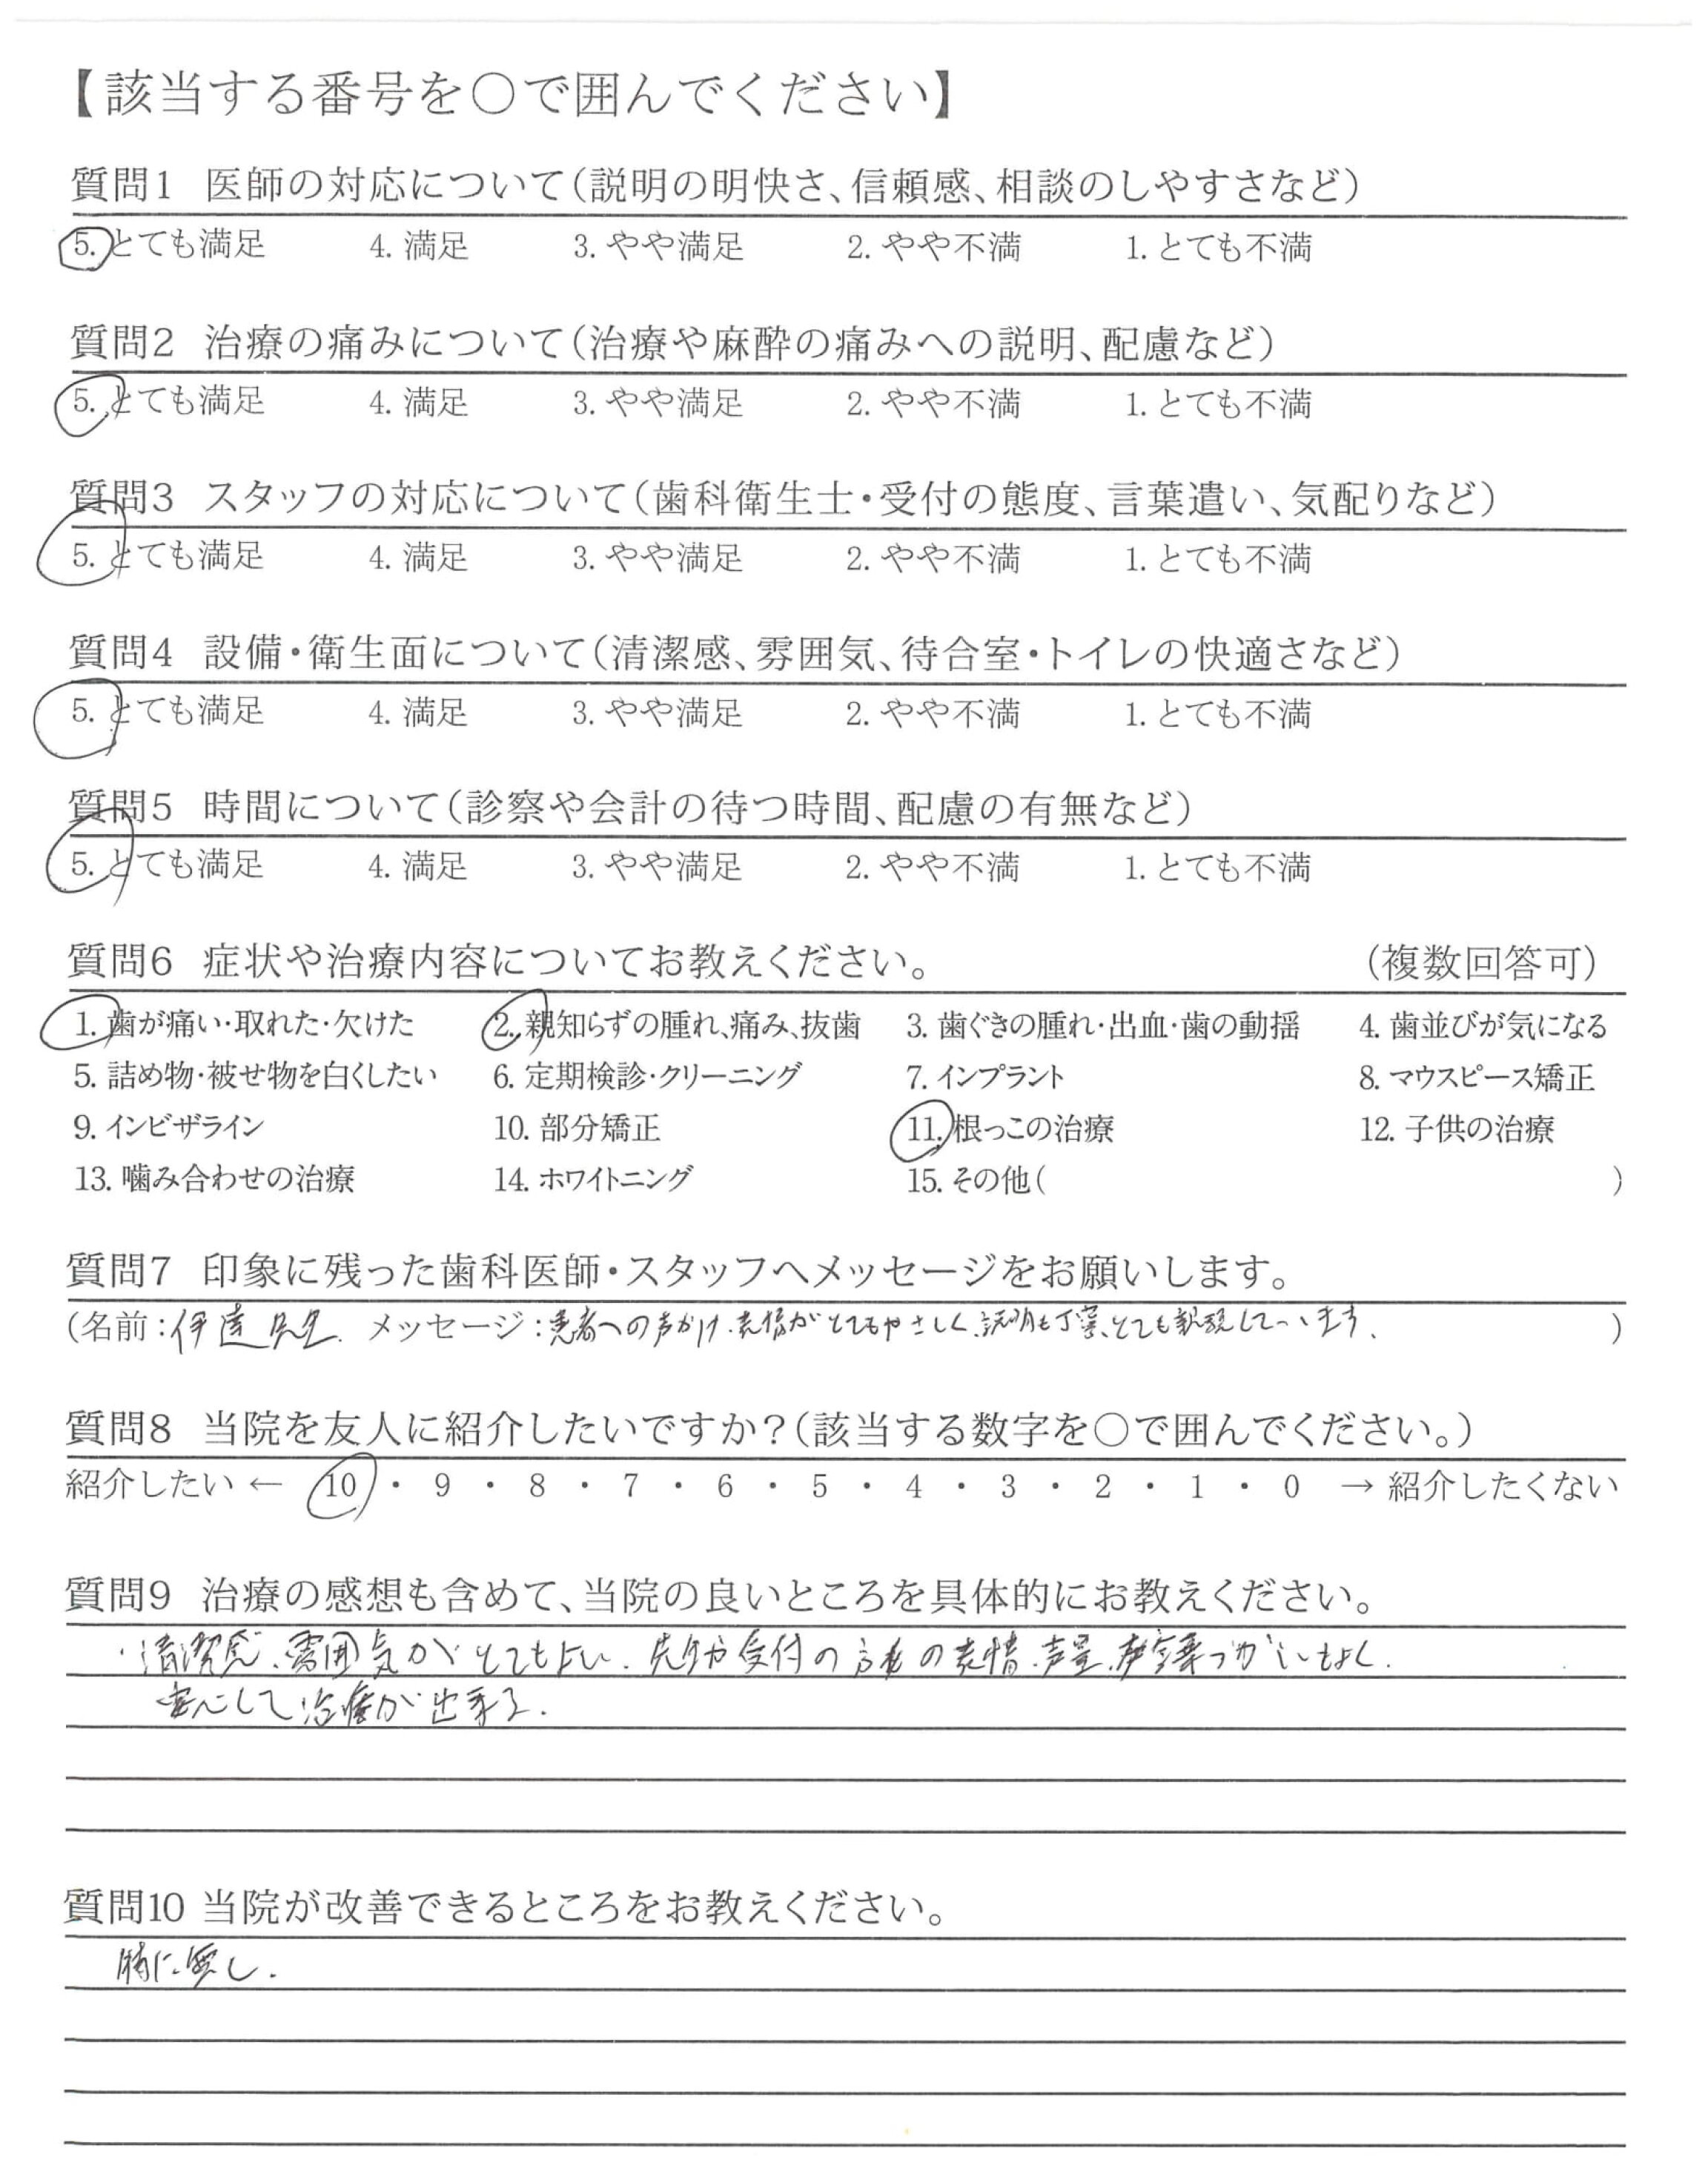 【該当する番号を○で囲んでください】
質問1 医師の対応について(説明の明快さ、信頼感、相談のしやすさなど)
5. とても満足 4. 満足 3. やや満足 2. やや不満 1. とても不満
質問2 治療の痛みについて(治療や麻酔の痛みへの説明、配慮など)
5. とても満足 4. 満足 3. やや満足 2. やや不満 1. とても不満
質問3 スタッフの対応について(歯科衛生士・受付の態度、言葉遣い、気配りなど)
5. とても満足 4. 満足 3. やや満足 2. やや不満 1. とても不満
質問4 設備・衛生面について(清潔感、雰囲気、待合室・トイレの快適さなど)
5. とても満足 4. 満足 3. やや満足 2. やや不満 1. とても不満
質問5 時間について(診察や会計の待つ時間、配慮の有無など)
5. とても満足 4. 満足 3. やや満足 2. やや不満 1. とても不満
質問6 症状や治療内容についてお教えください。 (複数回答可)
1. 歯が痛い・取れた・欠けた 2. 親知らずの腫れ、痛み、抜歯 3. 歯ぐきの腫れ・出血・歯の動揺 4. 歯並びが気になる
5. 詰め物・被せ物を白くしたい 6. 定期検診・クリーニング 7. インプラント 8. マウスピース矯正
9. インビザライン 10. 部分矯正 11. 根っこの治療 12. 子供の治療
13. 噛み合わせの治療 14. ホワイトニング 15. その他( )
質問7 印象に残った歯科医師・スタッフへメッセージをお願いします。
(名前：伊達先生. メッセージ：患者への声かけ、表情がとてもやさしく、説明も丁寧、とても しています. )
質問8 当院を友人に紹介したいですか？(該当する数字を○で囲んでください。)
紹介したい ← 10 ・ 9 ・ 8 ・ 7 ・ 6 ・ 5 ・ 4 ・ 3 ・ 2 ・ 1 ・ 0 → 紹介したくない
質問9 治療の感想も含めて、当院の良いところを具体的にお教えください。
・清潔感、雰囲気がとてもよい. 先生方 受付の の表情、声量、 よく.
安心して治療が出来る.
質問10 当院が改善できるところをお教えください。
特に無し.